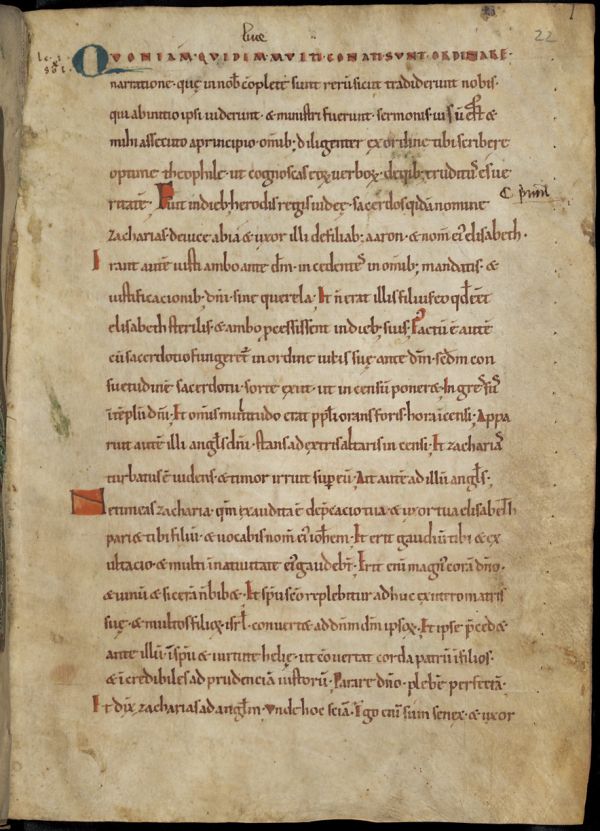 luce
22
QVONIAM QVIDEM MVLTI CONATI SVNT ORDINARE·
narratione· quę in nob̄ cōplete sunt rerū sicut tradiderunt nobis·
qui ab initio ipsi uiderunt· & ministri fuerunt· sermonis· uisū est &
mihi assecuto a principio omib; diligenter ex ordine tibi scribere
optime theophile· ut cognoscas eoꝝ uerboꝝ· de qib; eruditus es ue
ritatē· Fuit in dieb; herodis regis iudeę· sacerdos qdā nomine
zacharias· de uice abia & uxor illi de filiab; aaron· & nom̄ ei' elisabeth·
Erant autē iusti ambo ante dm̄· incedentes in omib; mandatis· &
iustificacionib; dn̄i· sine querela· Et ñ erat illis filius eo qd eēt
elisabeth sterilis· & ambo pcessissent in dieb; suis· Factū ē autē
cū sacerdotio fungeret̄ in ordine uicis suę· ante dm̄· sedm con
suetudinē sacerdotii· sorte exiit· ut incensū poneret· Ingressus
ī tēplū dn̄i· Et omis multitudo erat ppl̄i orans foris· hora īcensi· Appa
ruit autē illi angl̄s dn̄i· stans ad extris altaris incensi· Et zacharias
turbatus ē uidens· & timor irruit sup eū· Ait autē ad illū angl̄s·
Ne timeas zacharia· qm̄ exaudita ē depcacio tua· & uxor tua elisabeth
pari& tibi filiū· & uocabis nom̄ ei' ioh̄em· Et erit gaudiū tibi & ex
ultacio· & multi in natiuitate ei' gaudebt̄· Erit eni magn' corā dn̄o·
& uinū & sicerā ñ bib&· Et sp̄u sc̄o replebitur adhuc ex utero matris
suę· & multos filioꝝ· isrl̄· conuert& ad dn̄m dm̄ ipsoꝝ· Et ipse pced&
ante illū· ī sp̄u & uirtute helię· ut cōuertat corda patrū ī filios·
& īcredibiles ad prudenciā iustorū· Parare dn̄o· plebē perfectā·
Et dix̄ zacharias ad angl̄m· Vnde hoc sciā· Ego eni sum senex· & uxor